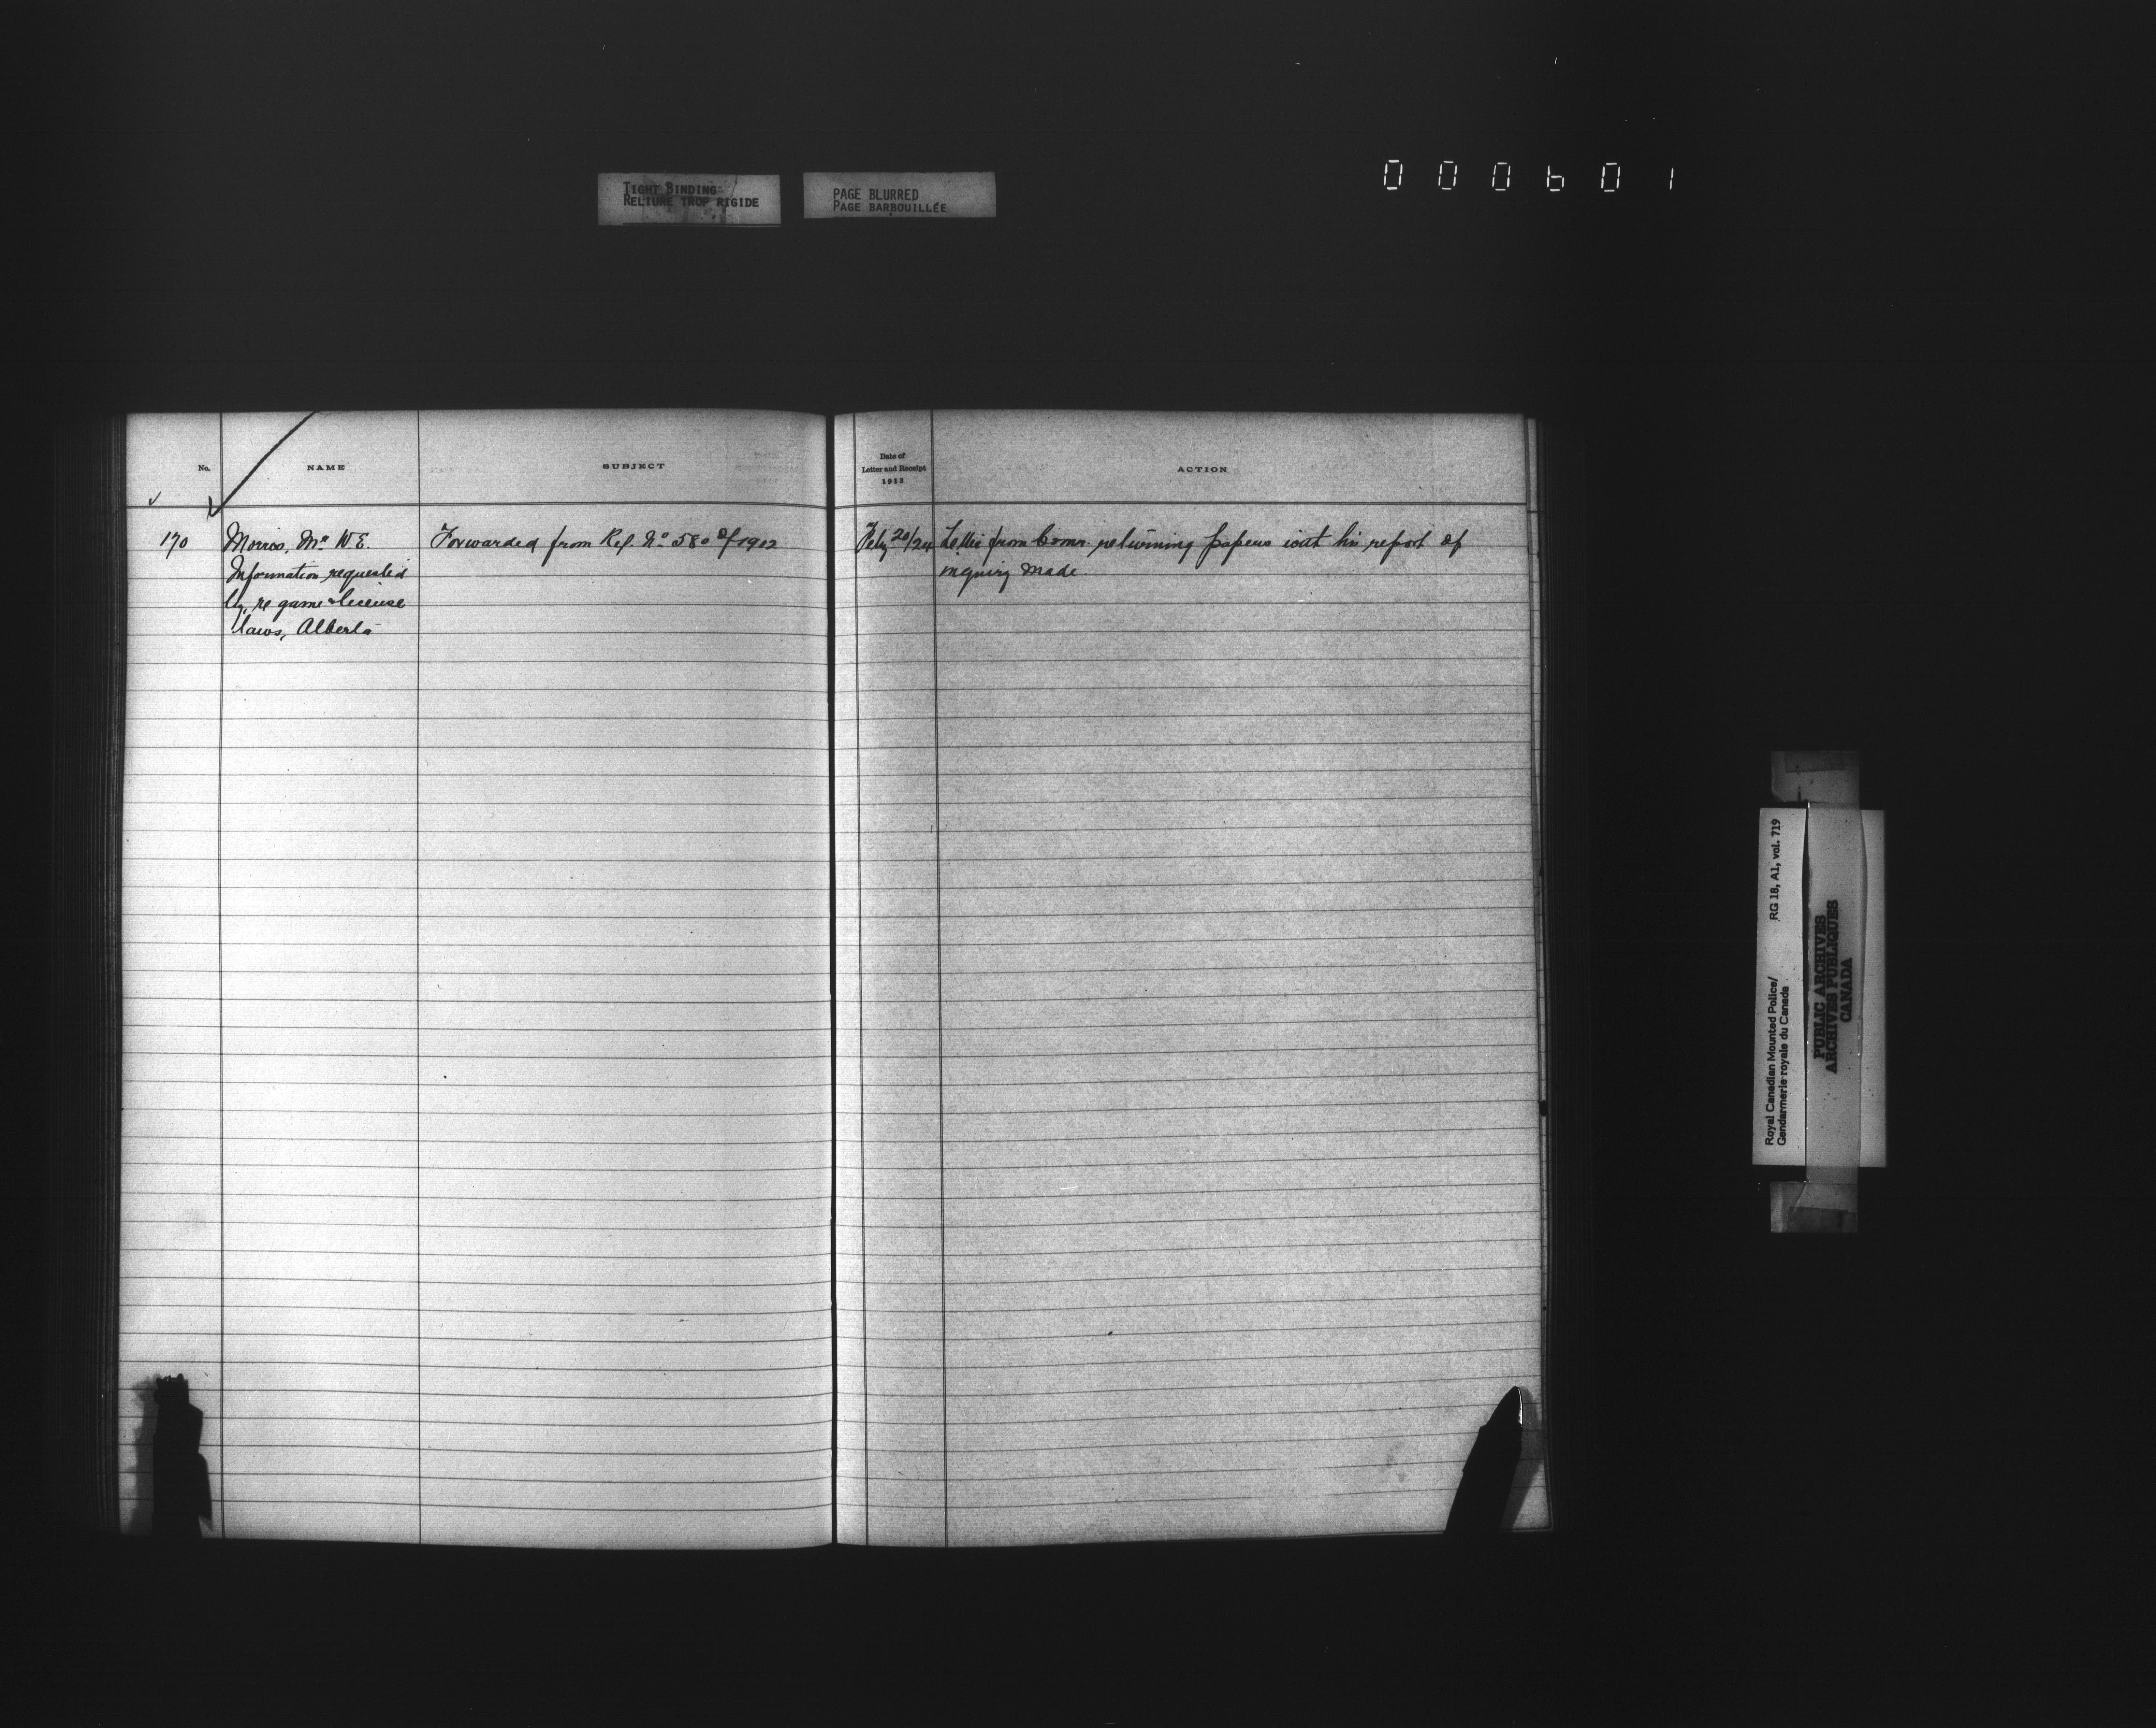 TIGHT BINDING
RELIURE TROP RIGIDE
PAGE BLURRED
PAGE BARBOUILLÉE
000601
No.
NAME
SUBJECT
Date of
Letter and Receipt
1913
ACTION
170
Morris, Mr. W E.
Information requested
by, re game & license
laws, Alberta
Forwarded from Ref. No 580 of 1912
Feby 20/24
Letter from Comr. returning papers with his report of
inquiry made
Royal Canadian Mounted Police/
Gendarmerie royale du Canada
RG 18, A1, vol. 719
PUBLIC ARCHIVES
ARCHIVES PUBLIQUES
CANADA